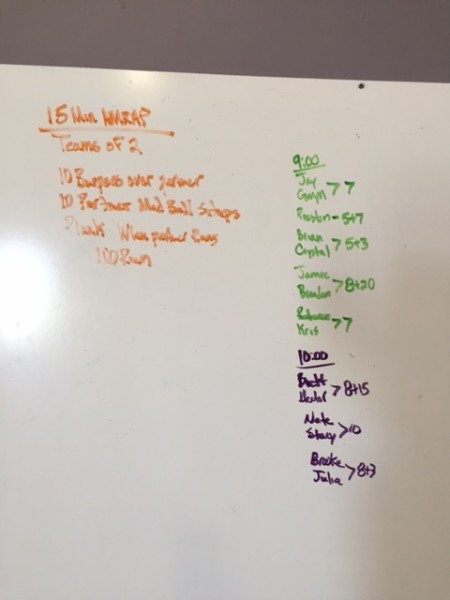 15 Min AMRAP
Teams of 2
10 Burpees over partner
10 Partner Med Ball Situps
Plank When partner Runs
Run
9:00
Jay
> 7
Preston - 5+7
Brian
Crystal > 5+3
Jamie
Brandon > 8+20
Kris > 7
10:00
Brett
> 8+15
Nate
Stacy > 10
Brooke
Julie > 8+3